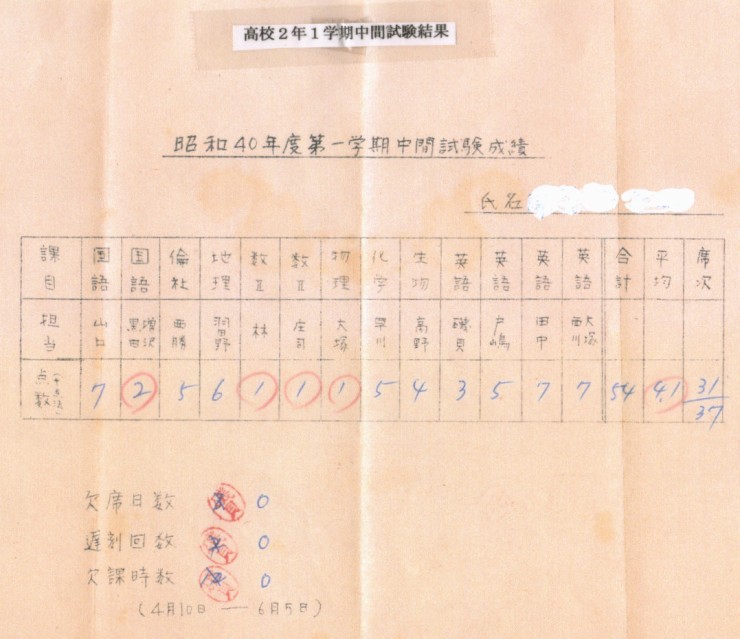 高校2年1学期中間試験結果
昭和40年度第一学期中間試験成績
氏名
課目 国語 国語 倫社 地理 数Ⅱ 数Ⅱ 物理 化学 生物 英語 英語 英語 英語 合計 平均 席次
担当 山口 増沢 黒田 西勝 羽野 林 庄司 大塚 早川 高野 磯貝 戸嶋 田中 大塚 西川
点数(十点法) 7 2 5 6 1 1 1 5 4 3 5 7 7 54 4.1 31/37
欠席日数 0
遅刻回数 0
欠課時数 0
(4月10日 — 6月5日)